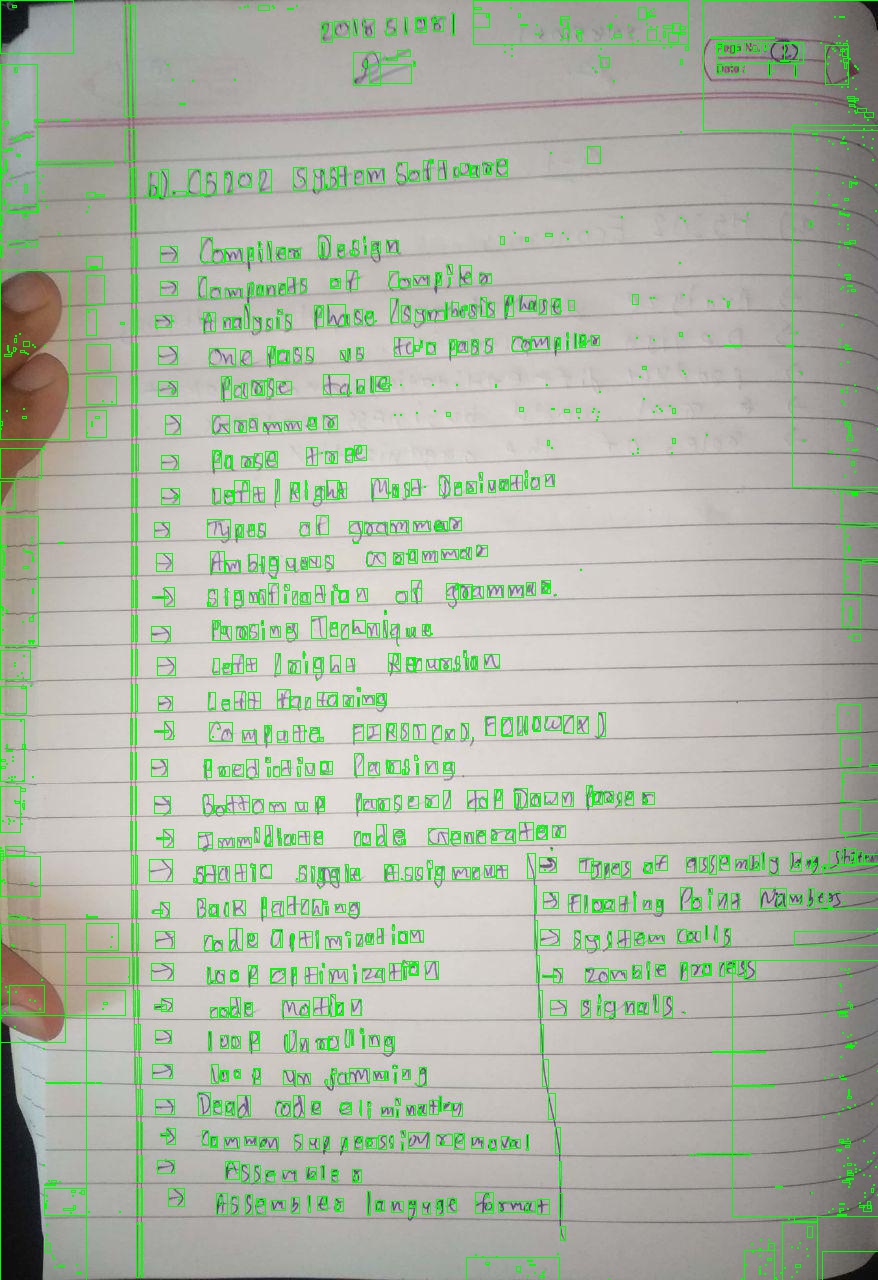 2018 51081
Page No.: 2
Date:
b). CS202 System Software
→ Compiler Design
→ Componets of Compiler
→ Analysis Phase /Synthesis Phase
→ One Pass vs two pass compiler
→ Parse table
→ Grammer
→ Parse tree
→ Left / Right Most Derivation
→ Types of grammer
→ Ambiguous Grammar
→ Signification of grammer.
→ Parsing Technique
→ Left / right Recursion
→ Left factoring
→ Compute FIRST(x), FOLLOW(x)
→ Predictive Parsing.
→ Bottom up parser / top Down Parser
→ Immidiate code Generator
→ Static single Assigment
→ Back Patching
→ code Optimization
→ Loop optimization
→ code Motion
→ loop Unrolling
→ Loop un Jamming
→ Dead code elimination
→ Common Suppression removal
→ Assembler
→ Assembler languge format
→ Types of assembly lang.
→ Floating Point Numbers
→ System calls
→ zombie process
→ signals.